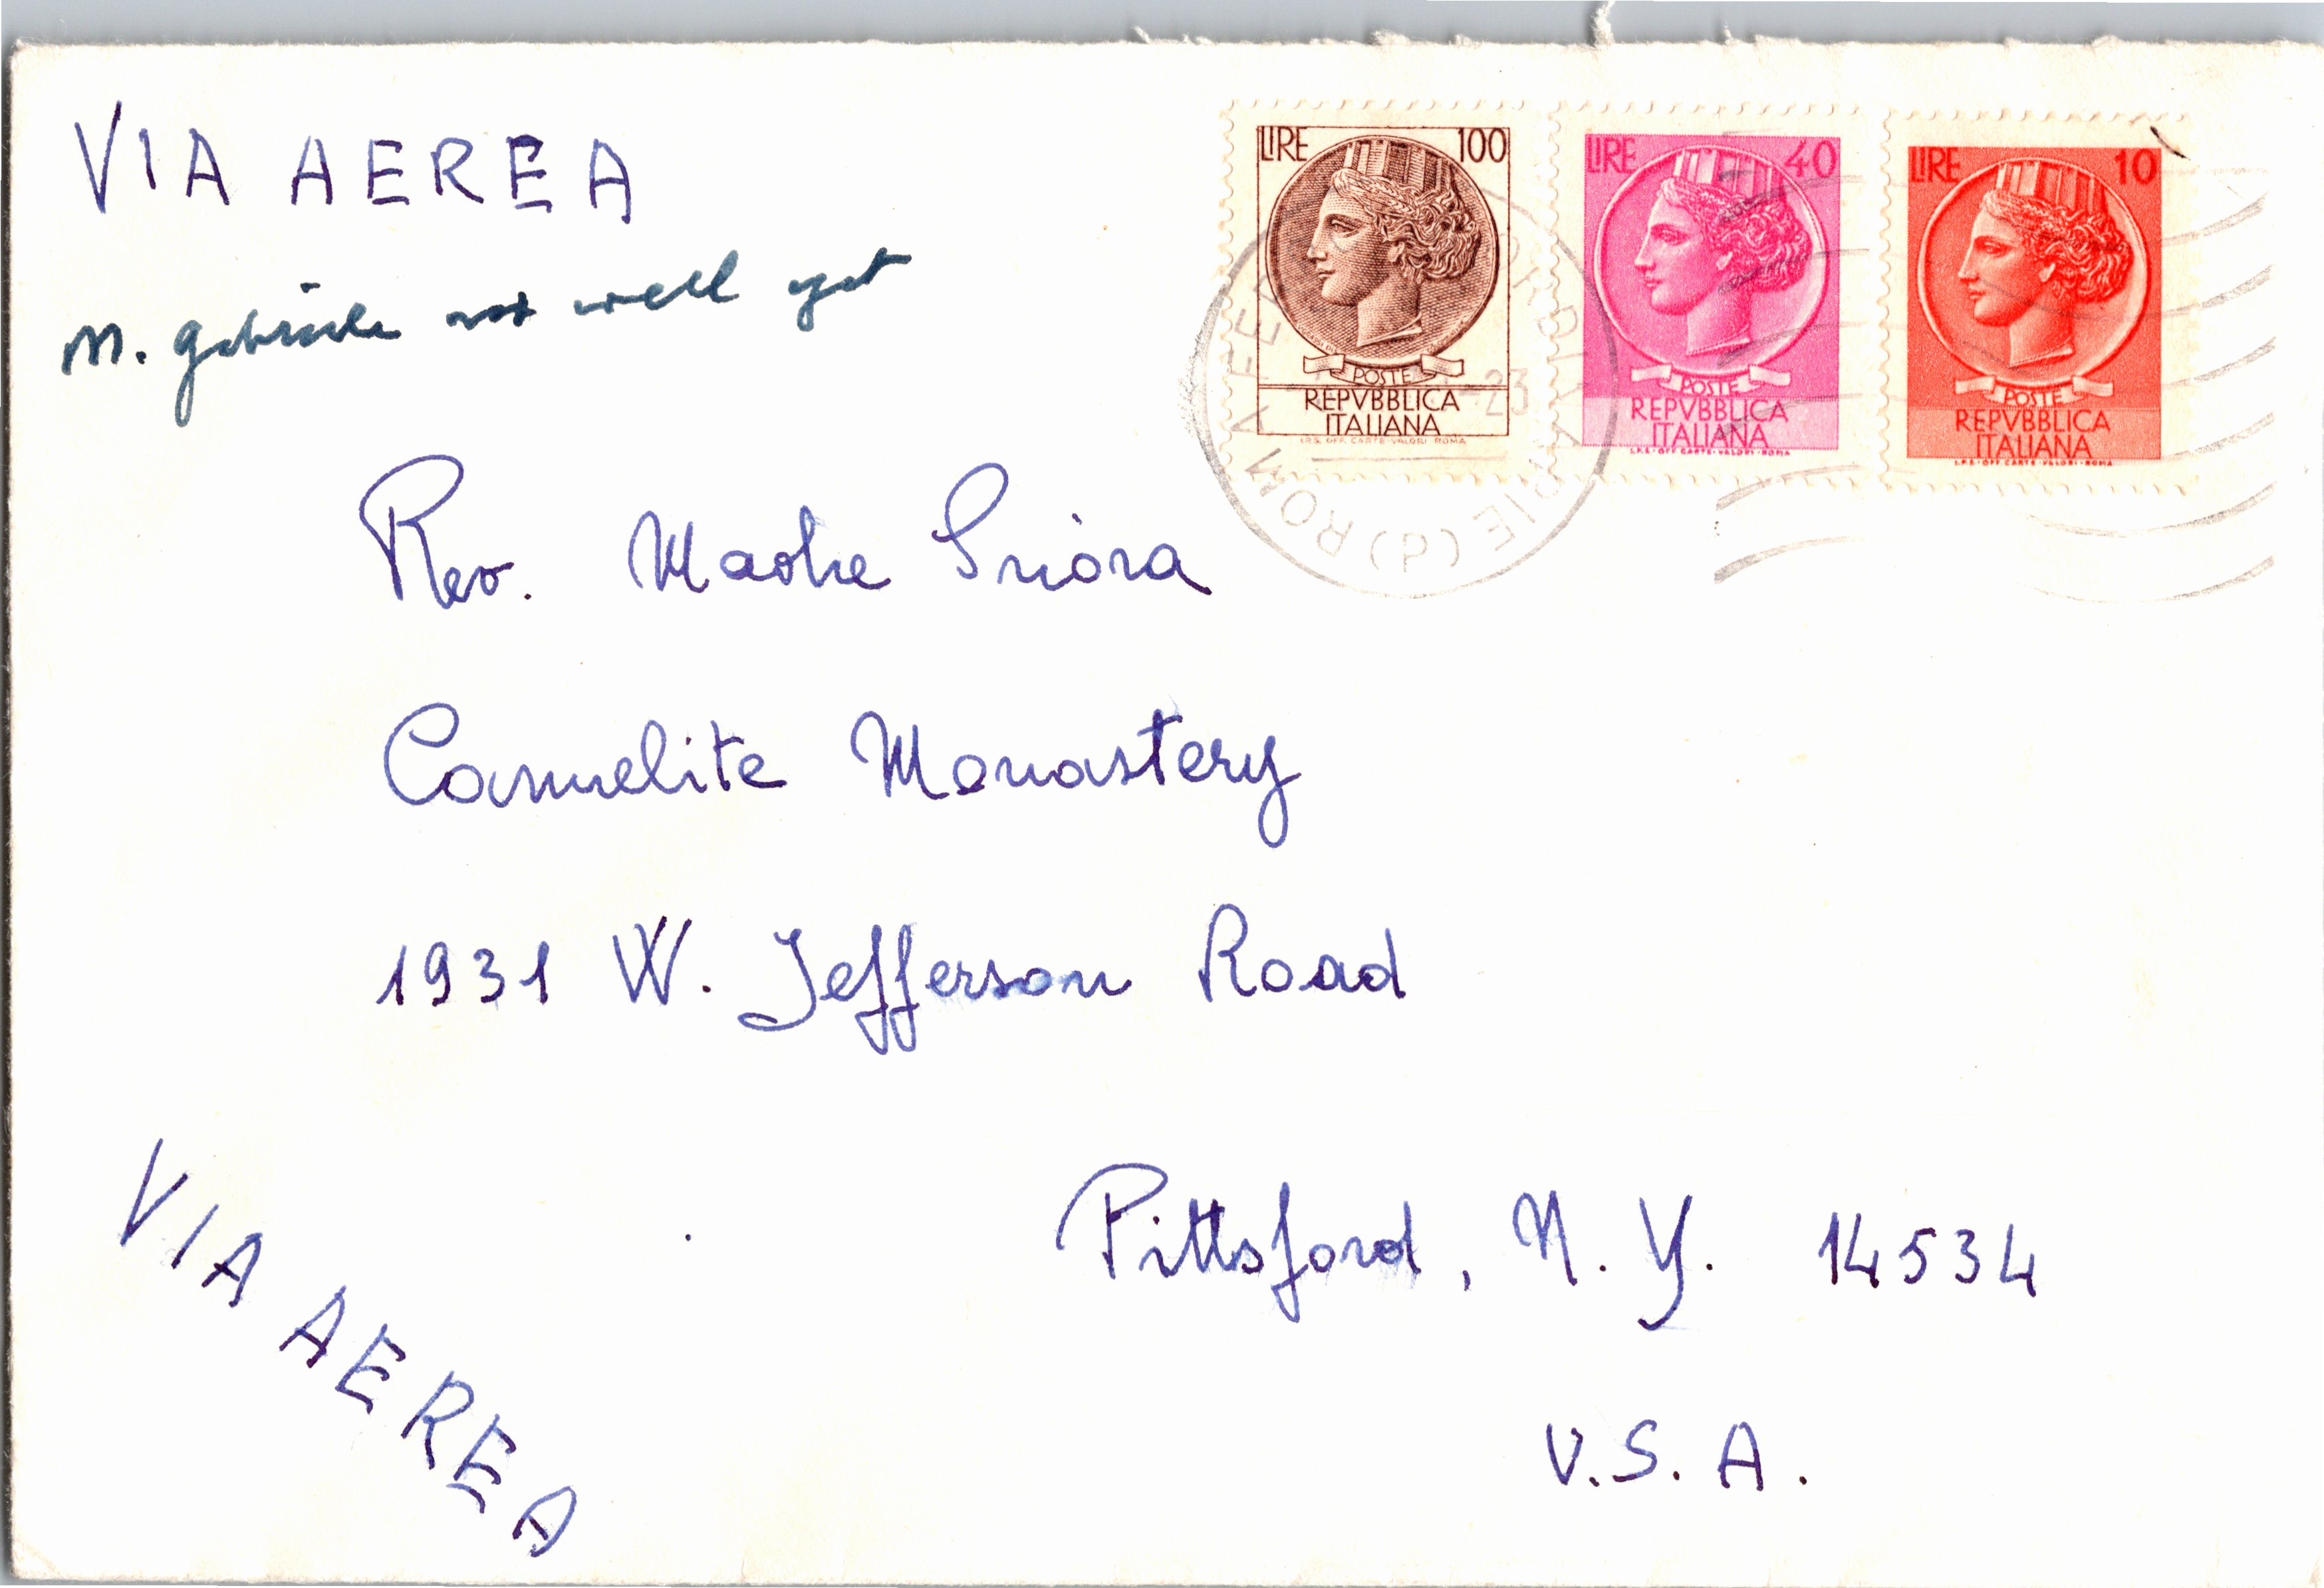 VIA AEREA
M. Gabriele not well yet
LIRE 100
POSTE
REPVBBLICA
ITALIANA
I.P.S. OFF. CARTE-VALORI ROMA
LIRE 40
POSTE
REPVBBLICA
ITALIANA
I.P.S. OFF. CARTE-VALORI-ROMA
LIRE 10
POSTE
REPVBBLICA
ITALIANA
I.P.S. OFF. CARTE-VALORI-ROMA
ROMA
Rev. Madre Priora
Carmelite Monastery
1931 W. Jefferson Road
Pittsford, N.Y. 14534
U.S.A.
VIA AEREA